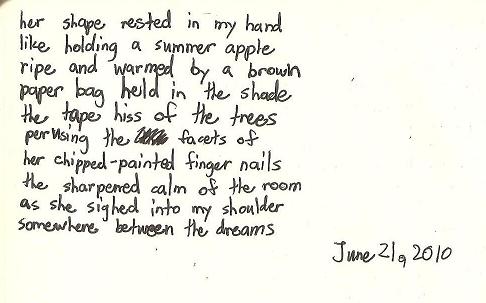 her shape rested in my hand
like holding a summer apple
ripe and warmed by a brown
paper bag held in the shade
the tape hiss of the trees
perusing the facets of
her chipped-painted finger nails
the sharpened calm of the room
as she sighed into my shoulder
somewhere between the dreams
June 21, 2010